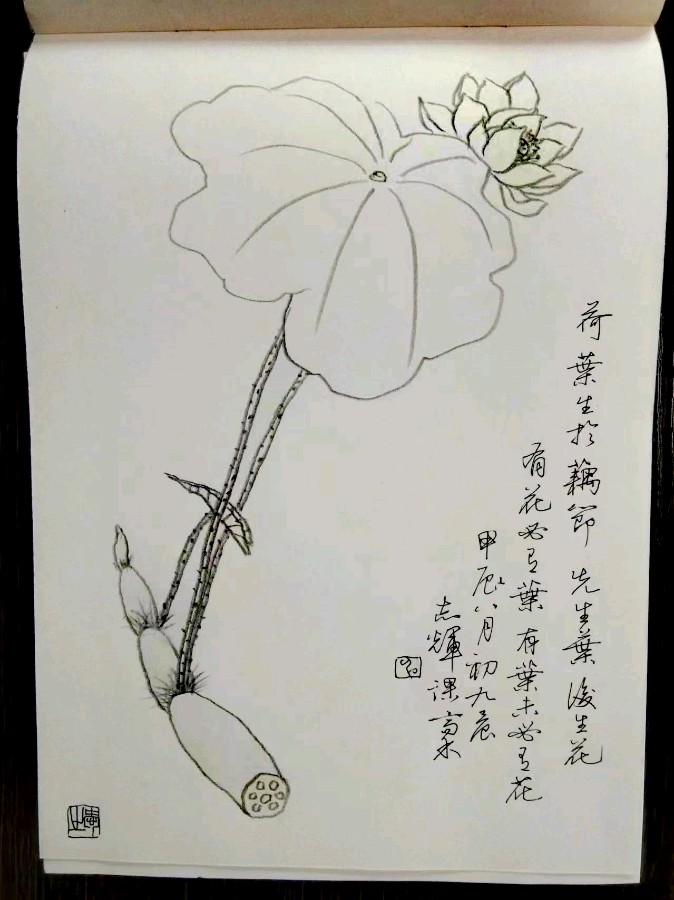 荷葉生於藕節先生葉後生花
有花必有葉有葉未必有花
甲辰八月初九晨
志輝課稾